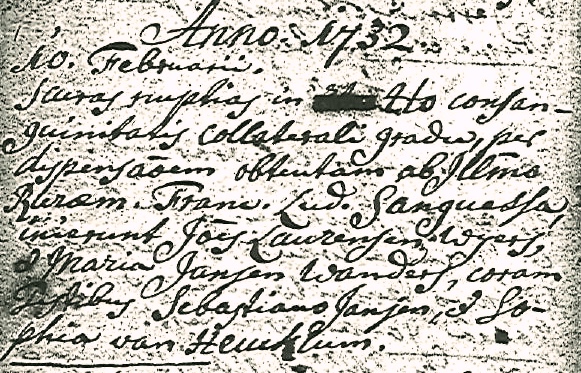 Anno. 1732.
10. Februarii.
Sacras nuptias in 4to consan-
guinitatis collaterali gradu, per
dispensaõem obtentam ab Illmo
Ruræm. Franc. Lud. Sanguessa,
inierunt Jões Laurensen Wyers,
& Maria Jansen Wanders, coram
Testibus Sebastiano Jansen, & So-
phia van Heucklum.